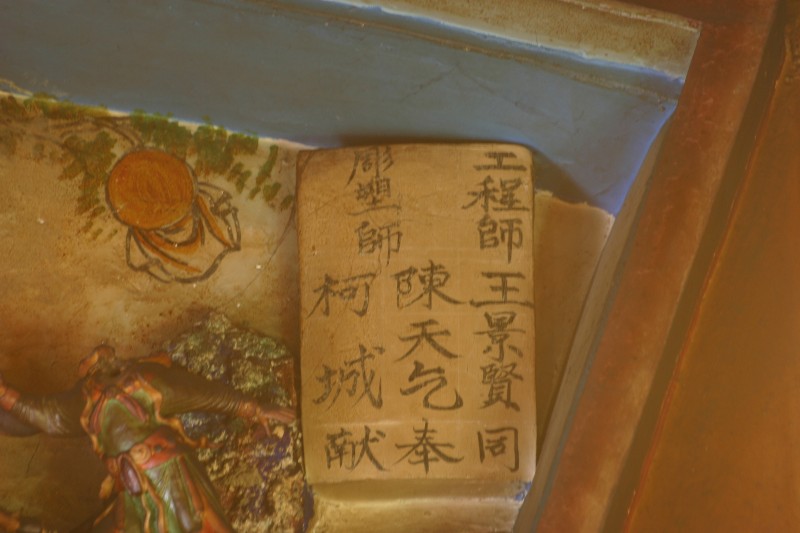 工程師王景賢同
陳天乞奉
彫塑師柯城献